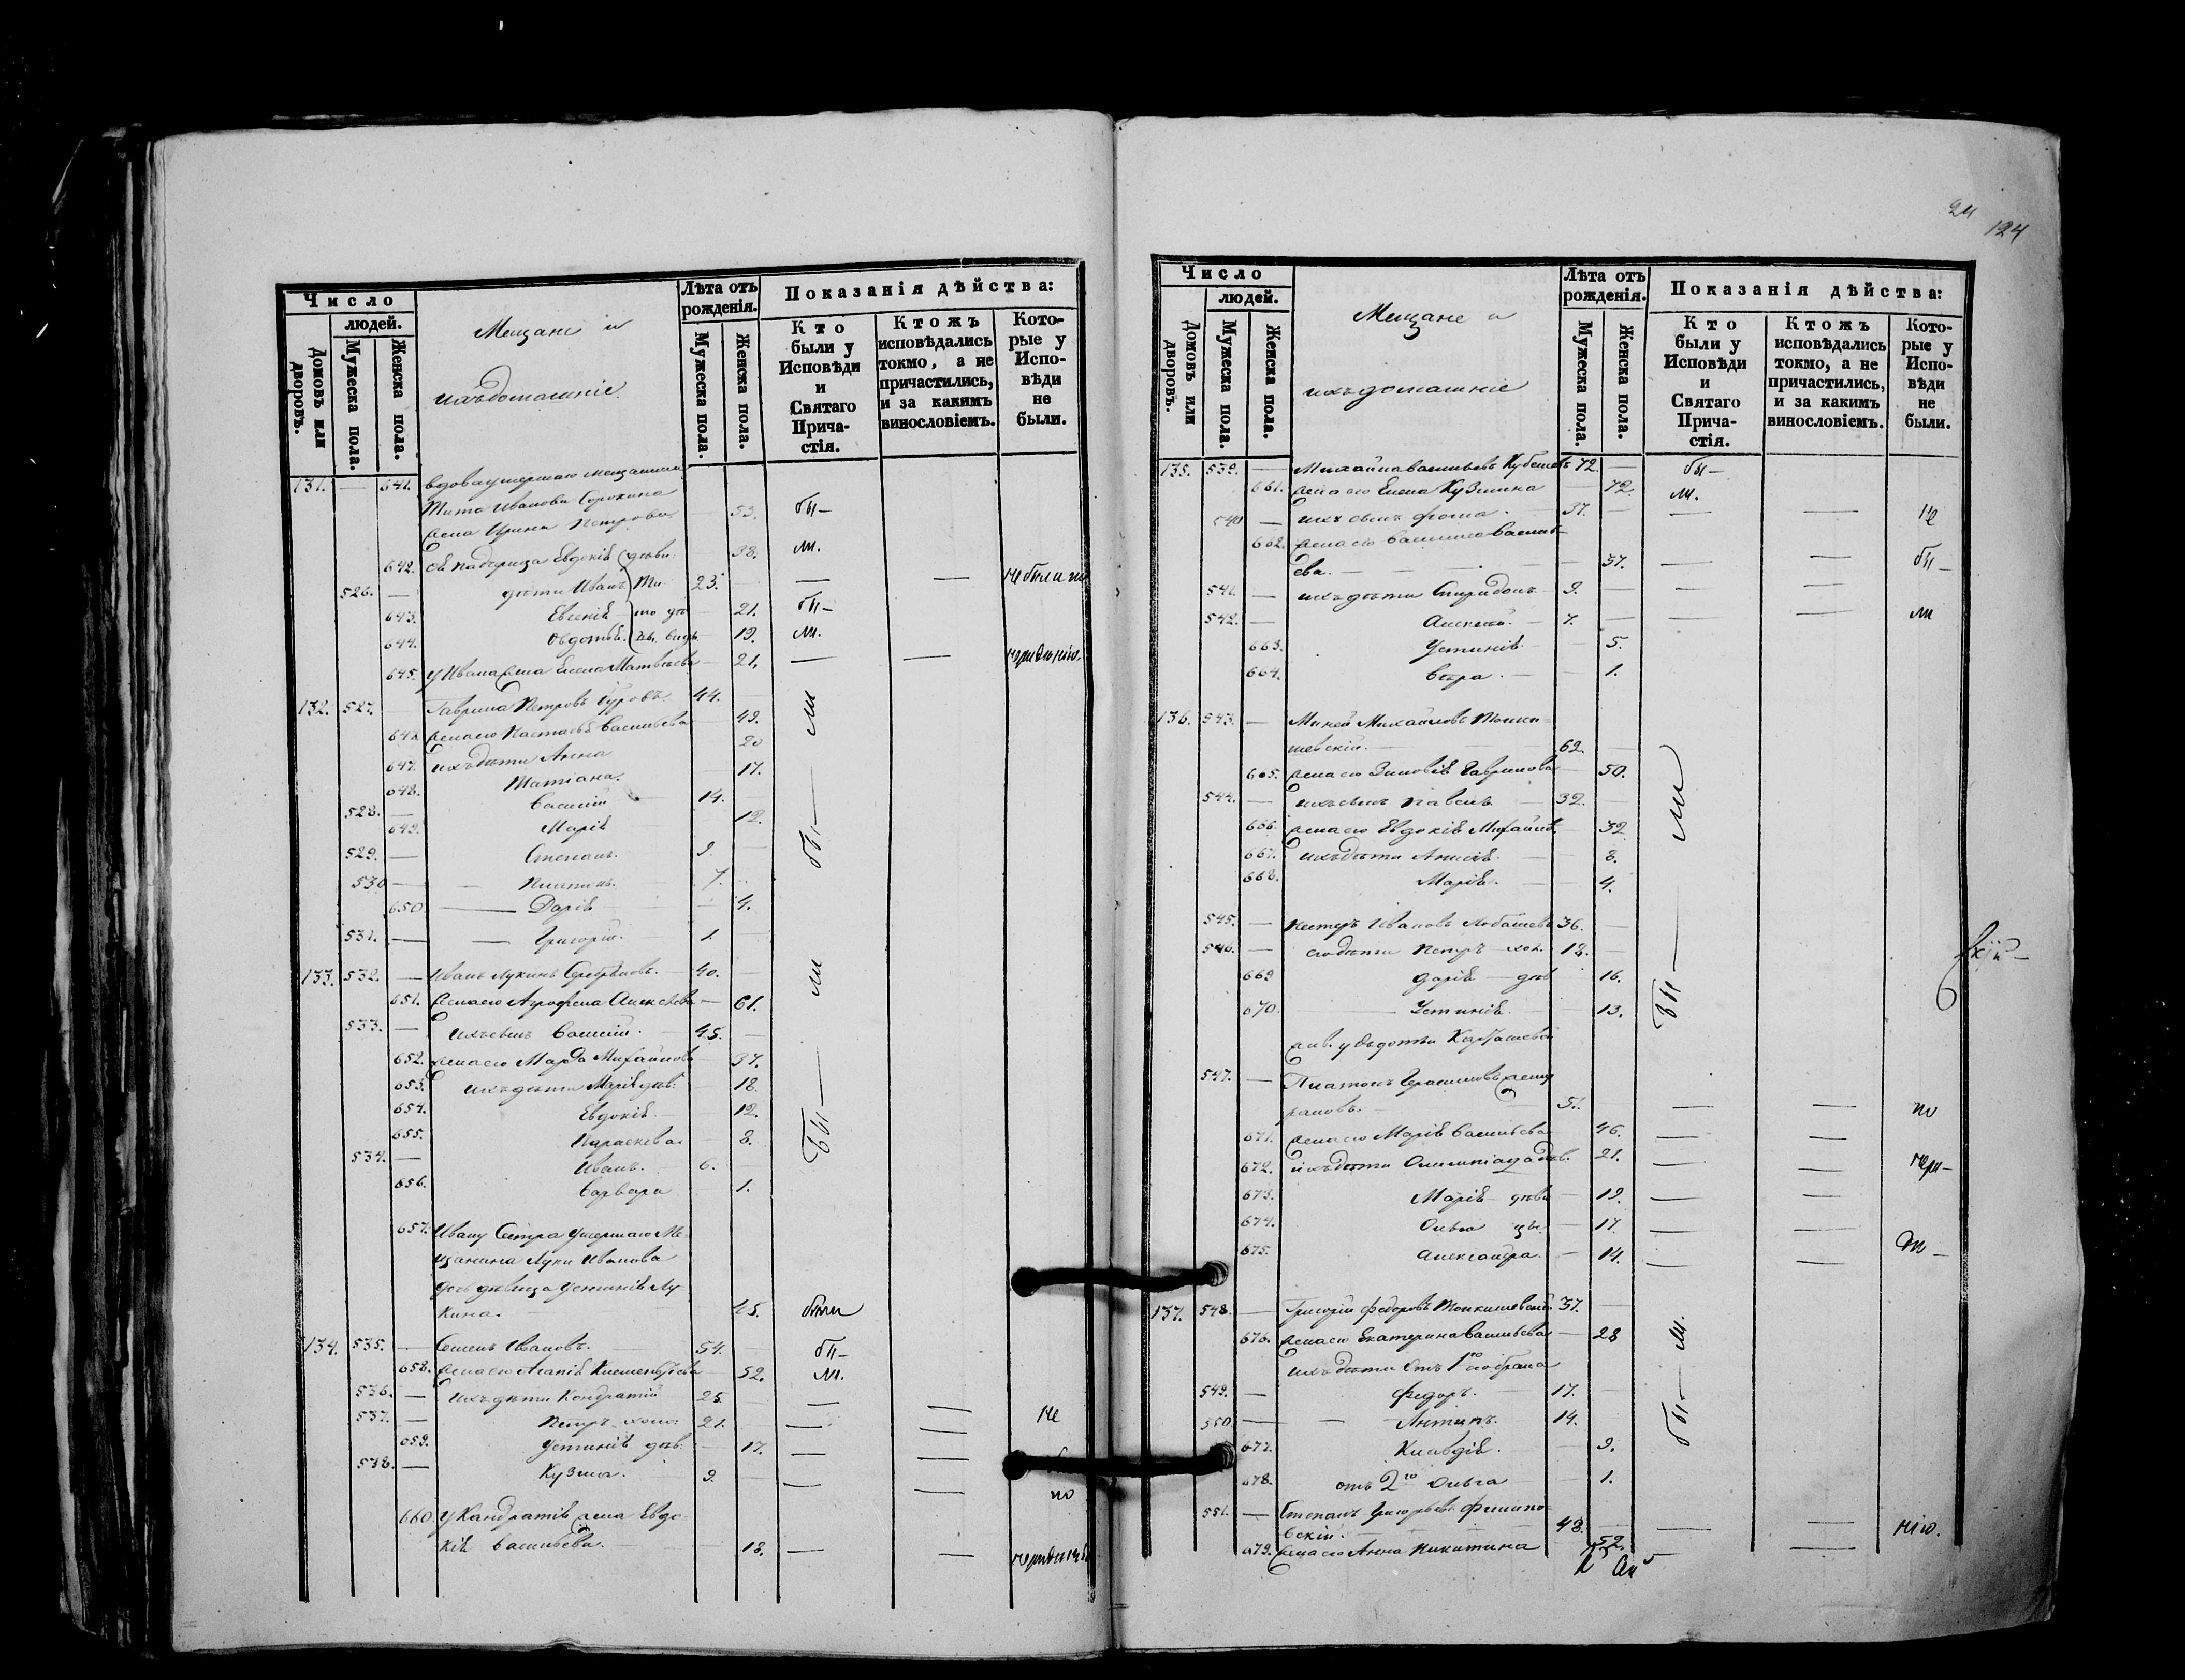 Число
людей.
Домовъ или дворовъ.
Мужеска пола.
Женска пола.
Мещане и
ихъ домашніе
Лѣта отъ рожденія.
Мужеска пола.
Женска пола.
Показанія дѣйства:
Кто были у Исповѣди и Святаго Прича-стія.
Ктожъ исповѣдались токмо, а не причастились, и за какимъ винословіемъ.
Кото-рые у Испо-вѣди не были.
131. — 641. вдова умершаго мещанина
Тита Иванова Сорокина
жена Ирина Петрова 53. бы-
642. Ея падчерица Евдокія 38. ли.
526. — дѣти Иванъ 23. — — не были по
643. Евгенія 21. бы-
644. 19. ли.
645. у Ивана жена Елена Матвеева — 21. — — нерадѣнію.
132. 527. — Гаврила Петровъ Гуровъ. 44.
646. жена его Настасья Васильева 49.
647. ихъ дѣти Анна 20
648. Татіана. 17.
528. — Василій 14.
649. Марія 12.
529. — Степанъ. 9.
530 — Платонъ. 7.
650. Дарія 4.
531. — Григорій. 1.
бы — ли
133. 532. — Иванъ Лукинъ 40.
651. жена его Агрофена Алексеева — 61.
533. — ихъ сынъ Василій. 45.
652. жена его Марфа Михайлова 37.
653. ихъ дѣти Марія дѣв. 18.
654. Евдокія. 12.
655. Параскева. 8.
534. — Иванъ. 6.
656. Варвара 1.
бы — ли
657. Ивану Сестра умершаго Ме-
щанина Луки Иванова
дочь девица Устинія Лу-
кина. 45. были
134. 535. — Семенъ Ивановъ. 54. бы-
658. жена его Агапія 52. ли.
536. — ихъ дѣти Кондратій 25. — — не
537. — Петръ холос. 21. — —
659. Устинія дѣв. 17. — —
538. — Кузма. 9. — — по
660. у Кандратія жена Евдо-
кія Васильева. 18. — —
24
124
Число
людей.
Домовъ или дворовъ.
Мужеска пола.
Женска пола.
Мещане и
ихъ домашніе
Лѣта отъ рожденія.
Мужеска пола.
Женска пола.
Показанія дѣйства:
Кто были у Исповѣди и Святаго Прича-стія.
Ктожъ исповѣдались токмо, а не причастились, и за какимъ винословіемъ.
Кото-рые у Испо-вѣди не были.
135. 539. — Михайла Васильевъ 72. — бы-
661. жена его Елена Кузмина — 72. ли.
540 — ихъ сынъ Фома. 37. — — — не
662. жена его Василиса Василь-
ева. 37. — — бы-
541. — ихъ дѣти Спиридонъ 9. — — —
542. — Алексей. 7. — — — ли
663. Устинія. 5.
664. Вѣра. 1.
136. 543. — Миней Михайловъ Томки-
шевскій. 62.
665. жена его Зиновія Гаврилова 50.
544. — ихъ сынъ Павелъ 32.
666. жена его Евдокія Михайло. 32
667. ихъ дѣти Анисія. 8.
668. Марія. 4.
545. — Петръ Ивановъ Лобашевъ 36.
546. — его дѣти Петръ хол. 18.
669 Дарія дѣв 16.
670. Устинія. 13.
Бы — ли
547. — Платонъ Герасимовъ
51. — — по
671. жена его Марія Васильева 46. — —
672. ихъ дѣти Олимпіада дѣв. 21. — — нера-
673. Марія дѣви 19. — —
674. Ольга 17. — —
675. Александра. 14. — — дѣ-
137. 548. — Григорій Федоровъ 37.
676. жена его Екатерина Васильева 28
ихъ дѣти отъ 1го его брака
549. — Федоръ. 17.
550 — Антипъ. 14.
677. Клавдія. 9.
678. отъ 2го Ольга 1.
бы — ли.
551. — Степанъ Григорьев. Филипо-
вскій. 48. — — нію.
679. жена его Анна Никитина 52. —